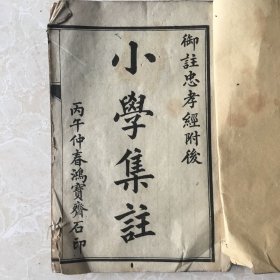 御註忠孝經附後
小學集註
丙午仲春鴻寶齋石印